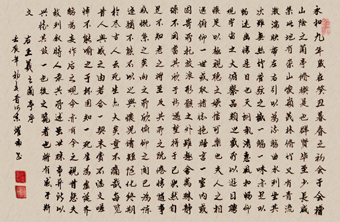 永和九年歲在癸丑暮春之初會于會稽
山陰之蘭亭脩稧事也群賢畢至少長咸
集此地有崇山峻領茂林脩竹又有清流
激湍暎帶左右引以為流觴曲水列坐其
次雖無絲竹管弦之盛一觴一詠亦足以
暢敘幽情是日也天朗氣清惠風和暢仰
觀宇宙之大俯察品類之盛所以遊目騁
懷足以極視聽之娛信可樂也夫人之相
與俯仰一世或取諸懷抱悟言一室之內或
因寄所託放浪形骸之外雖趣舍萬殊靜
躁不同當其欣於所遇暫得於己快然自
足不知老之將至及其所之既惓情隨事
遷感慨係之矣向之所欣俛仰之間已為陳
迹猶不能不以之興懷況脩短隨化終期
於盡古人云死生亦大矣豈不痛哉每覽
昔人興感之由若合一契未嘗不臨文嗟
悼不能喻之於懷固知一死生為虛誕齊
彭殤為妄作後之視今亦由今之視昔悲夫
故列敘時人錄其所述雖世殊事異所以
興懷其致一也後之覽者亦將有感於斯
文
右王羲之蘭亭序
壬辰年